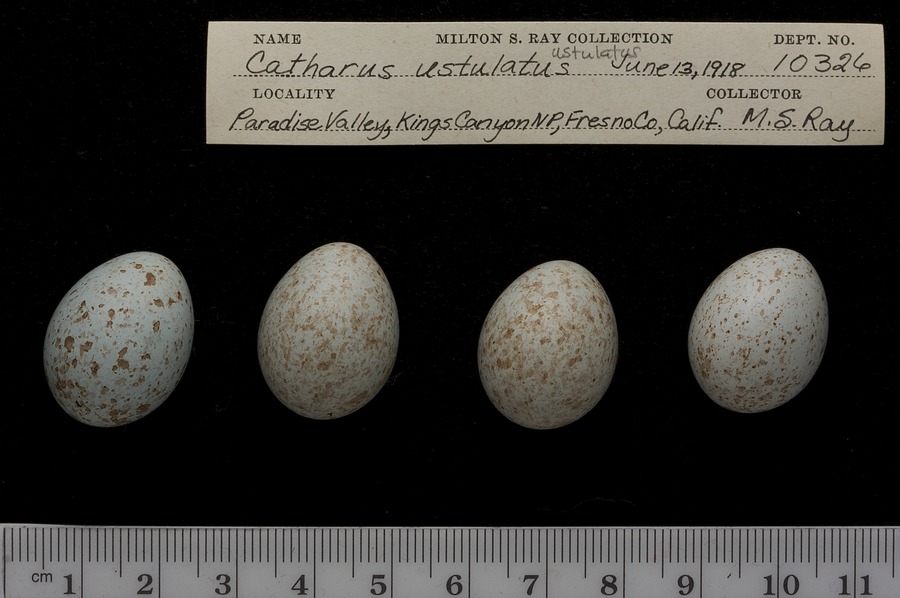 NAME MILTON S. RAY COLLECTION DEPT. NO.
ustulatus
Catharus ustulatus June 13, 1918 10326
LOCALITY COLLECTOR
Paradise Valley, Kings Canyon NP, Fresno Co, Calif. M.S. Ray
cm 1 2 3 4 5 6 7 8 9 10 11